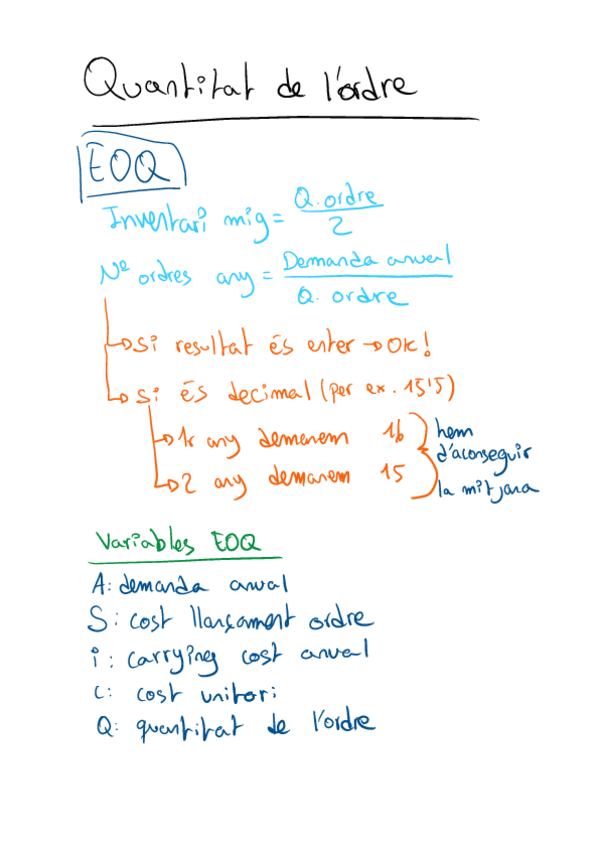 Quantitat de l'ordre
EOQ
Inventari mig = Q. ordre / 2
Nº ordres any = Demanda anual / Q. ordre
Si resultat és enter → Ok!
Si és decimal (per ex. 15'5)
1r any demanem 16
2 any demanem 15
hem
d'aconseguir
la mitjana
Variables EOQ
A: demanda anual
S: cost llançament ordre
i: carrying cost anual
C: cost unitari
Q: quantitat de l'ordre